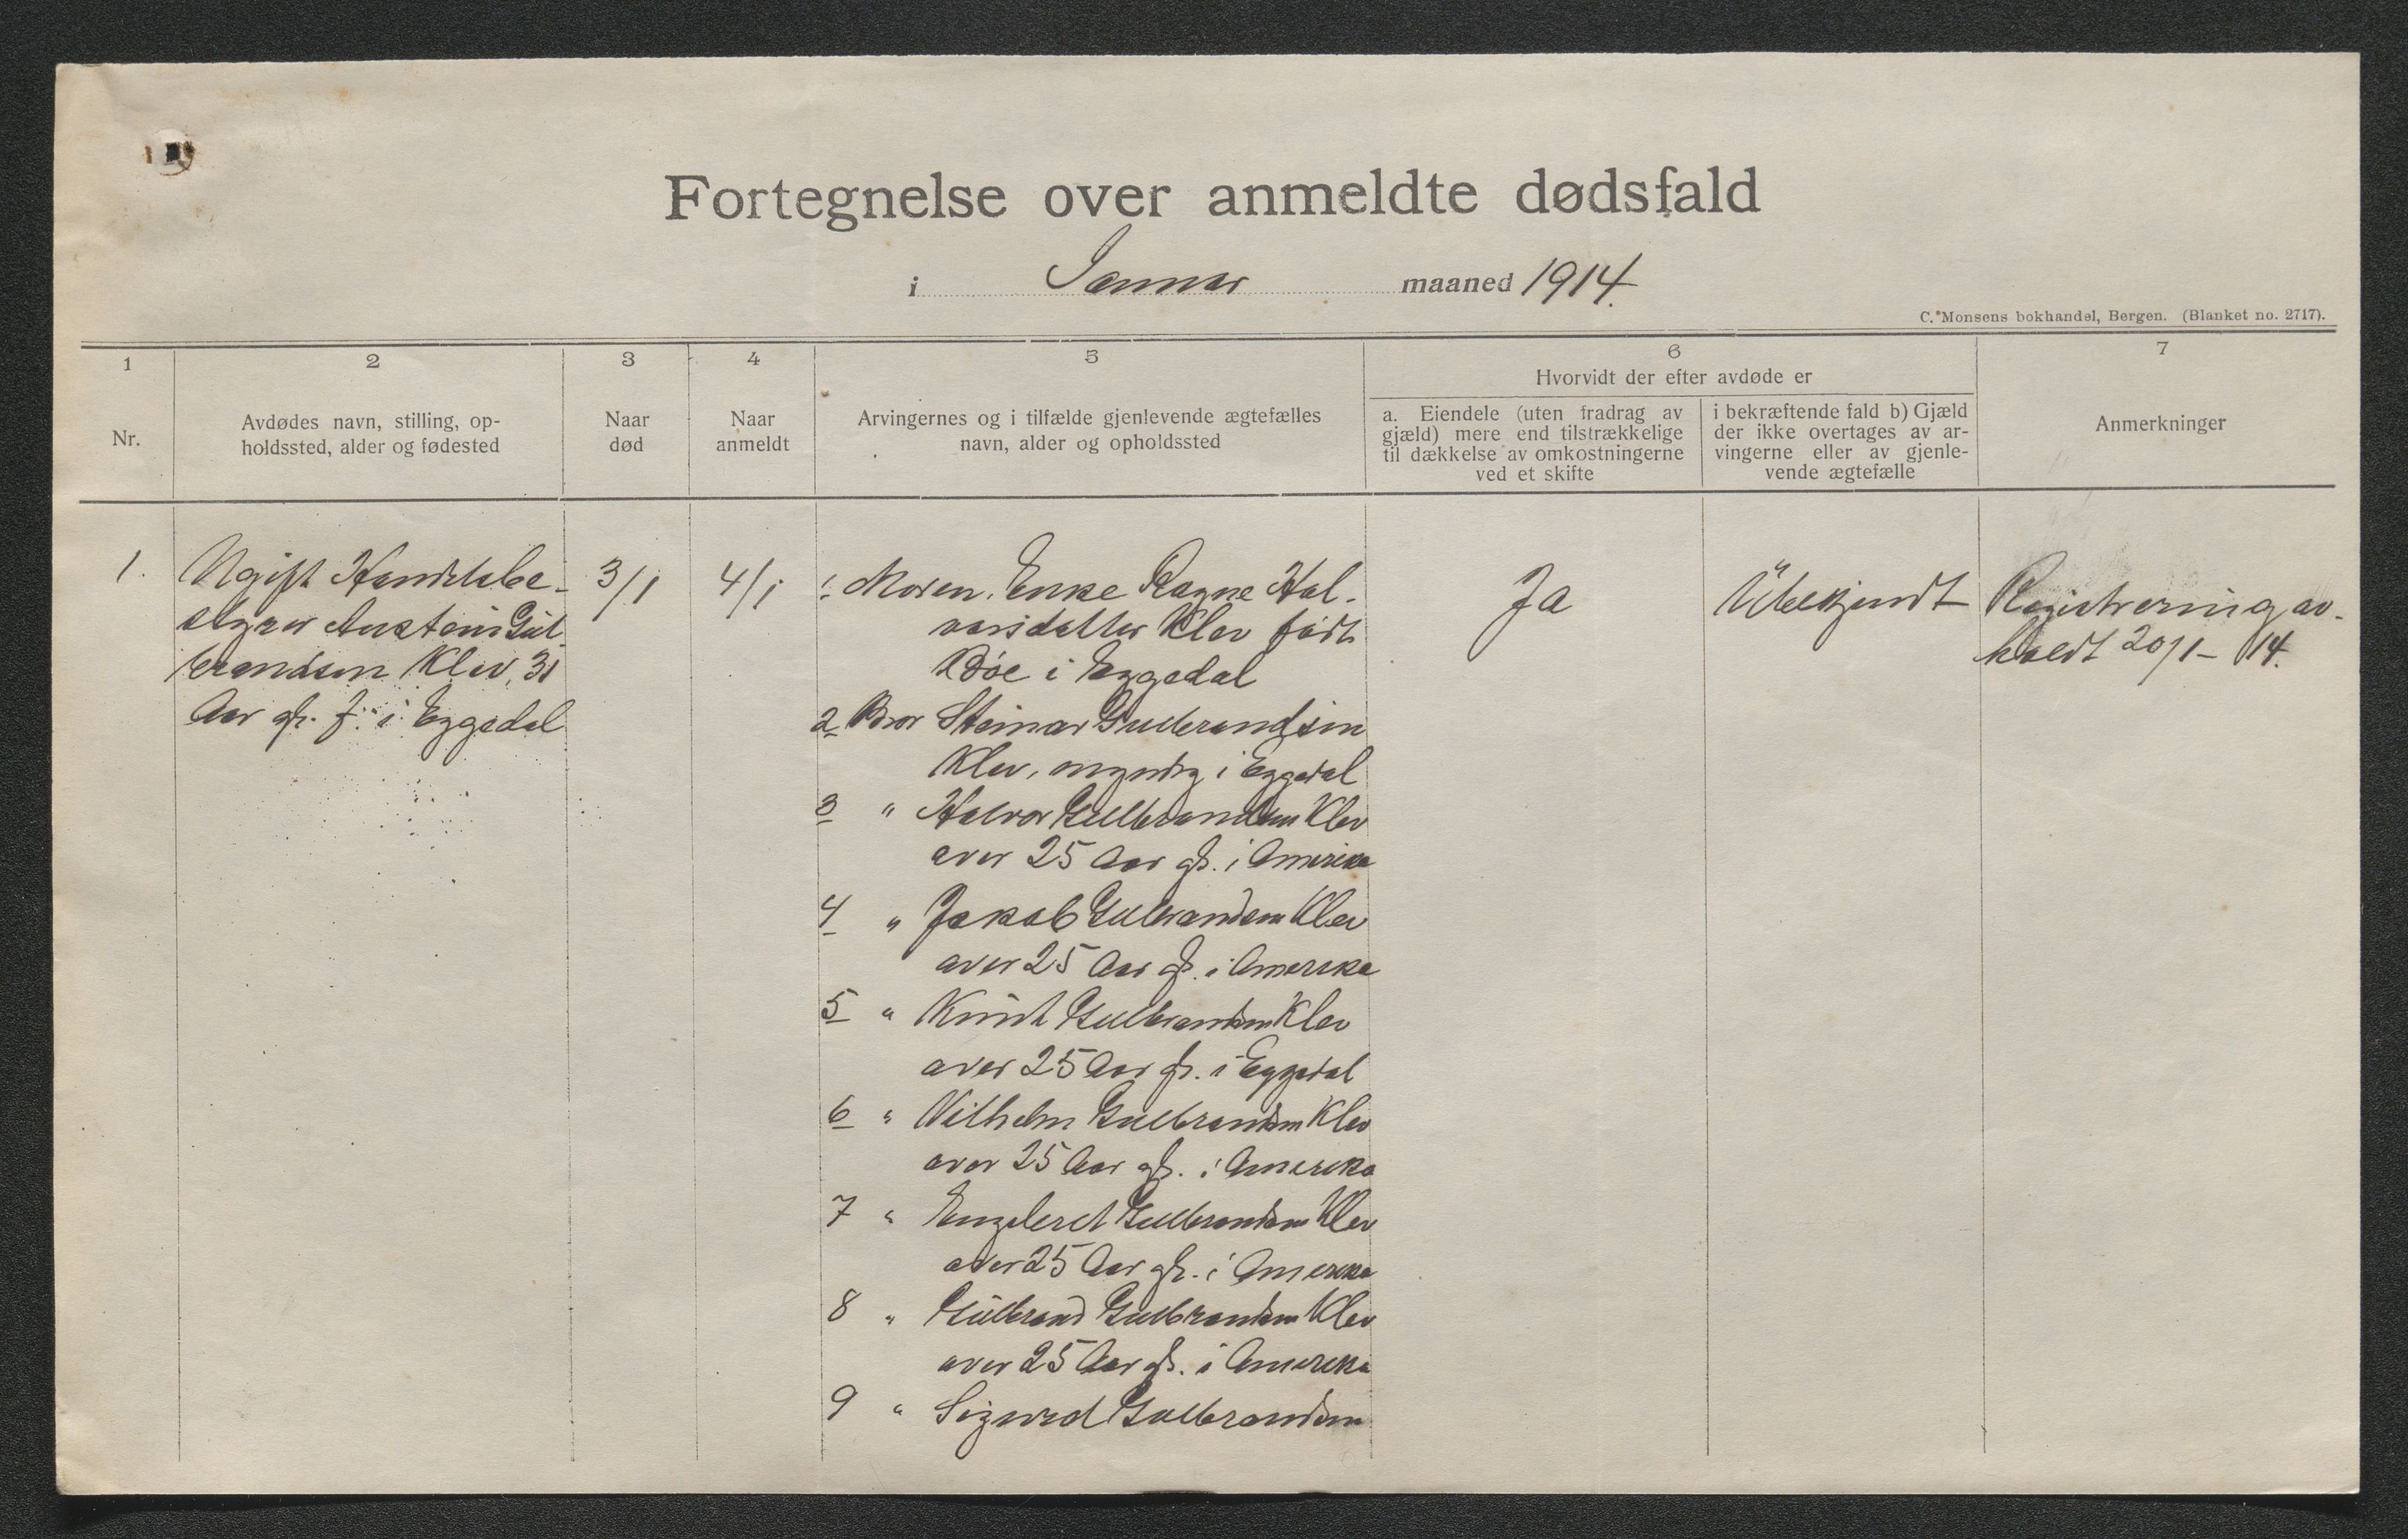 Fortegnelse over anmeldte dødsfald
i Januar maaned 1914.
C. Monsens bokhandel, Bergen. (Blanket no. 2717).
1
2
3
4
5
6
7
Nr.
Avdødes navn, stilling, op-
holdssted, alder og fødested
Naar
død
Naar
anmeldt
Arvingernes og i tilfælde gjenlevende ægtefælles
navn, alder og opholdssted
Hvorvidt der efter avdøde er
a. Eiendele (uten fradrag av
gjæld) mere end tilstrækkelige
til dækkelse av omkostningerne
ved et skifte
i bekræftende fald b) Gjæld
der ikke overtages av ar-
vingerne eller av gjenle-
vende ægtefælle
Anmerkninger
1.
Ugift Handelsbe-
styrer Austein Gul
brandsen Klev, 31
Aar gl. f. i Eggedal
3/1
4/1
1 Moren, Enke Ragne Hal-
vorsdatter Klev født
Bøe i Eggedal
2 Bror Steinar Gulbrandsen
Klev, myndig i Eggedal
3 " Halvor Gulbrandsen Klev
over 25 Aar gl. i Amerika
4 " Jakob Gulbrandsen Klev
over 25 Aar gl. i Amerika
5 " Knut Gulbrandsen Klev
over 25 Aar gl. i Eggedal
6 " Vilhelm Gulbrandsen Klev
over 25 Aar gl. i Amerika
7 " Engebret Gulbrandsen Klev
over 25 Aar gl. i Amerika
8 " Gulbrand Gulbrandsen Klev
over 25 Aar gl. i Amerika
9 " Sigurd Gulbrandsen
Ja
Ubekjendt
Registrering av-
holdt 20/1-14.